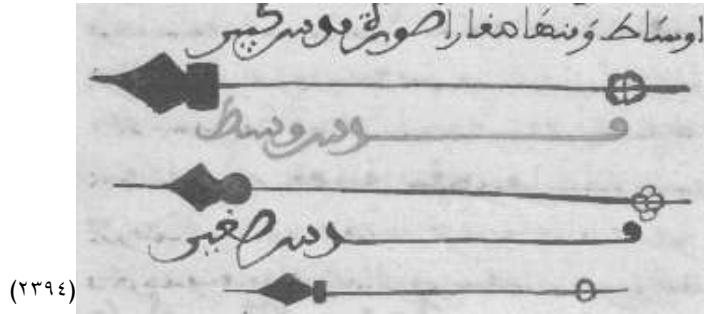 اوساط وَمنها صغارا صورة بوسركبير
وبوسر وسط
وبوسر صغير
(٢٣٩٤)